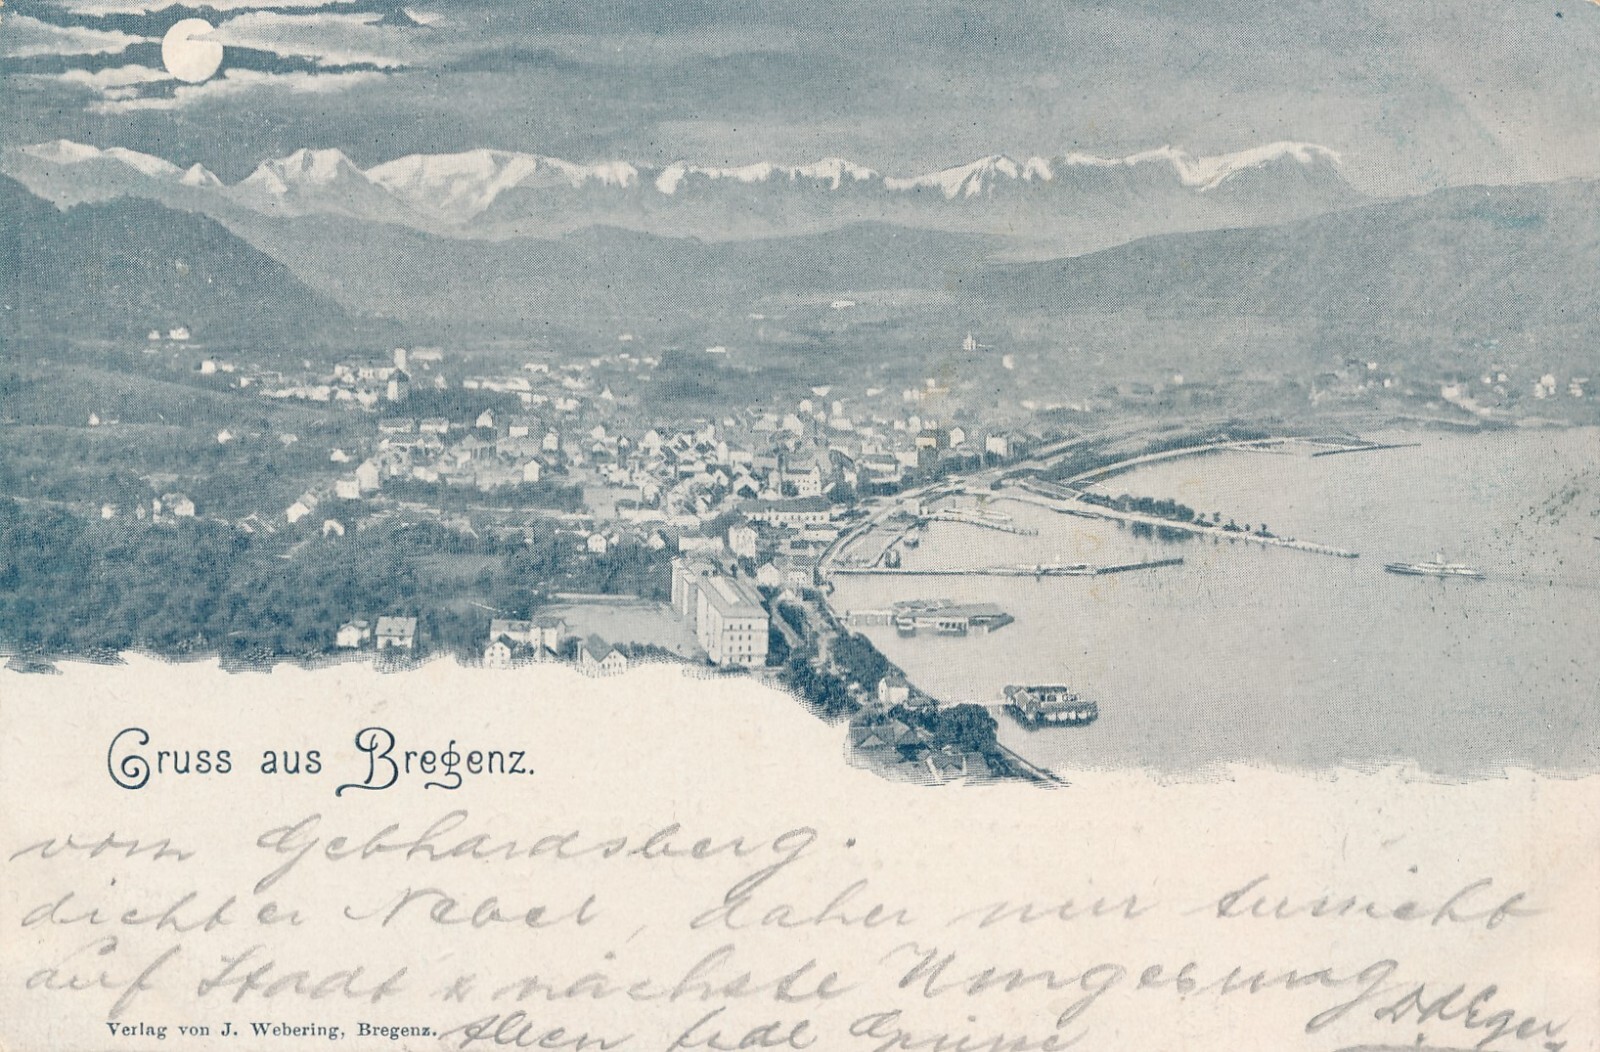 Gruss aus Bregenz.
vom Gebhardsberg.
dichter Nebel, daher nur Aussicht
auf Stadt & nächste Umgebung
Verlag von J. Webering, Bregenz.
Allen